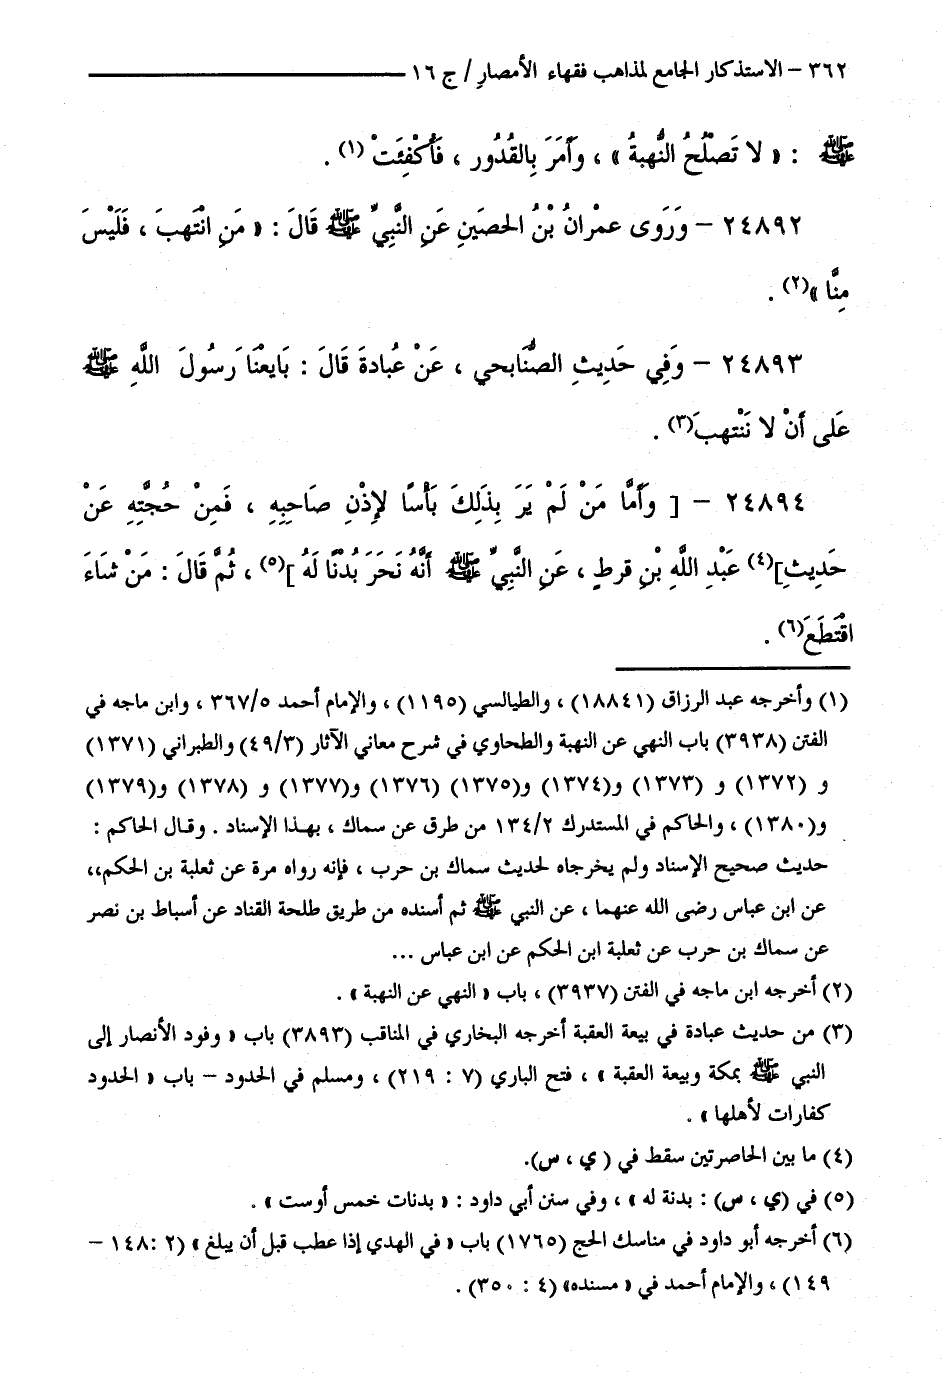 ٣٦٢ – الاستذكار الجامع لمذاهب فقهاء الأمصارِ / ج ١٦
ﷺ : « لا تَصْلُحُ النُّهبةُ » ، وَأَمَرَ بِالقُدُور ، فَأُكْفِئَتْ (١) .
٢٤٨٩٢ – وَرَوَى عمْرانُ بْنُ الحصَينِ عَنِ النَّبِيِّ ﷺ قَالَ : « مَنِ انْتَهبَ ، فَلَيْسَ
مِنَّا »(٢) .
٢٤٨٩٣ – وَفِي حَدِيثِ الصُّنَابحي ، عَنْ عُبادةَ قَالَ : بَايعْنَا رَسُولَ اللَّهِ ﷺ
عَلى أَنْ لا نَنْتهبَ(٣) .
٢٤٨٩٤ – [ وَأَمَّا مَنْ لَمْ يَرَ بِذَلِكَ بَأْسًا لإِذْنِ صَاحِبِهِ ، فَمِنْ حُجَّتِهِ عَنْ
حَدِيثِ](٤) عَبْدِ اللَّهِ بْنِ قرطٍ ، عَنِ النَّبِيِّ ﷺ أَنَّهُ نَحَرَ بُدْنًا لَهُ ](٥) ، ثُمَّ قَالَ : مَنْ شَاءَ
اقْتَطَعَ(٦) .
(١) وأخرجه عبد الرزاق (١٨٨٤١) ، والطيالسي (١١٩٥) ، والإمام أحمد ٣٦٧/٥ ، وابن ماجه في
الفتن (٣٩٣٨) باب النهي عن النهبة والطحاوي في شرح معاني الآثار (٤٩/٣) والطبراني (١٣٧١)
و (١٣٧٢) و (١٣٧٣) و(١٣٧٤) و(١٣٧٥) (١٣٧٦) و(١٣٧٧) و (١٣٧٨) و(١٣٧٩)
و(١٣٨٠) ، والحاكم في المستدرك ١٣٤/٢ من طرق عن سماك ، بهذا الإسناد . وقال الحاكم :
حديث صحيح الإسناد ولم يخرجاه لحديث سماك بن حرب ، فإنه رواه مرة عن ثعلبة بن الحكم،،
عن ابن عباس رضى الله عنهما ، عن النبي ﷺ ثم أسنده من طريق طلحة القناد عن أسباط بن نصر
عن سماك بن حرب عن ثعلبة ابن الحكم عن ابن عباس ...
(٢) أخرجه ابن ماجه في الفتن (٣٩٣٧) ، باب « النهي عن النهبة » .
(٣) من حديث عبادة في بيعة العقبة أخرجه البخاري في المناقب (٣٨٩٣) باب « وفود الأنصار إلى
النبي ﷺ بمكة وبيعة العقبة » ، فتح الباري (٧ : ٢١٩) ، ومسلم في الحدود – باب « الحدود
كفارات لأهلها » .
(٤) ما بين الحاصرتين سقط في ( ي ، س).
(٥) في (ي ، س) : بدنة له » ، وفي سنن أبي داود : « بدنات خمس أوست » .
(٦) أخرجه أبو داود في مناسك الحج (١٧٦٥) باب « في الهدي إذا عطب قبل أن يبلغ » (٢ :١٤٨ –
١٤٩) ، والإمام أحمد في « مسنده» (٤ : ٣٥٠) .